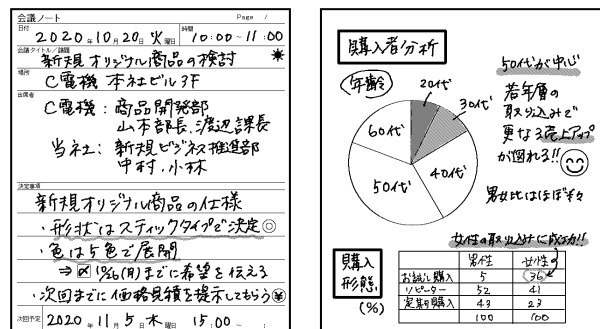 会議ノート Page /
日付 2020年10月20日 火曜日 時間 10:00~11:00
会議タイトル/議題
新規オリジナル商品の検討
場所
C電機 本社ビル3F
出席者
C電機:商品開発部
山本部長、渡辺課長
当社:新規ビジネス推進部
中村、小林
決定事項
新規オリジナル商品の仕様
・形状はスティックタイプで決定◎
・色は5色で展開
⇒〆10/26(月)までに希望を伝える
・次回までに価格見積を提示してもらう¥
次回予定 2020年11月5日 木曜日 15:00~
購入者分析
年齢
20代
30代
40代
50代
60代
50代が中心
若年層の
取り込みで
更なる売上アップ
が図れる!!
男女比はほぼ半々
女性の取り込みに成功!!
購入
形態
(%)
男性 女性
お試し購入 5 36
リピーター 52 41
定期購入 43 23
100 100